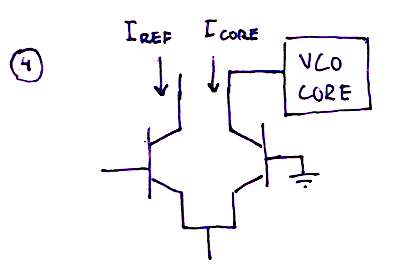 I REF I CORE
4
VCO
CORE